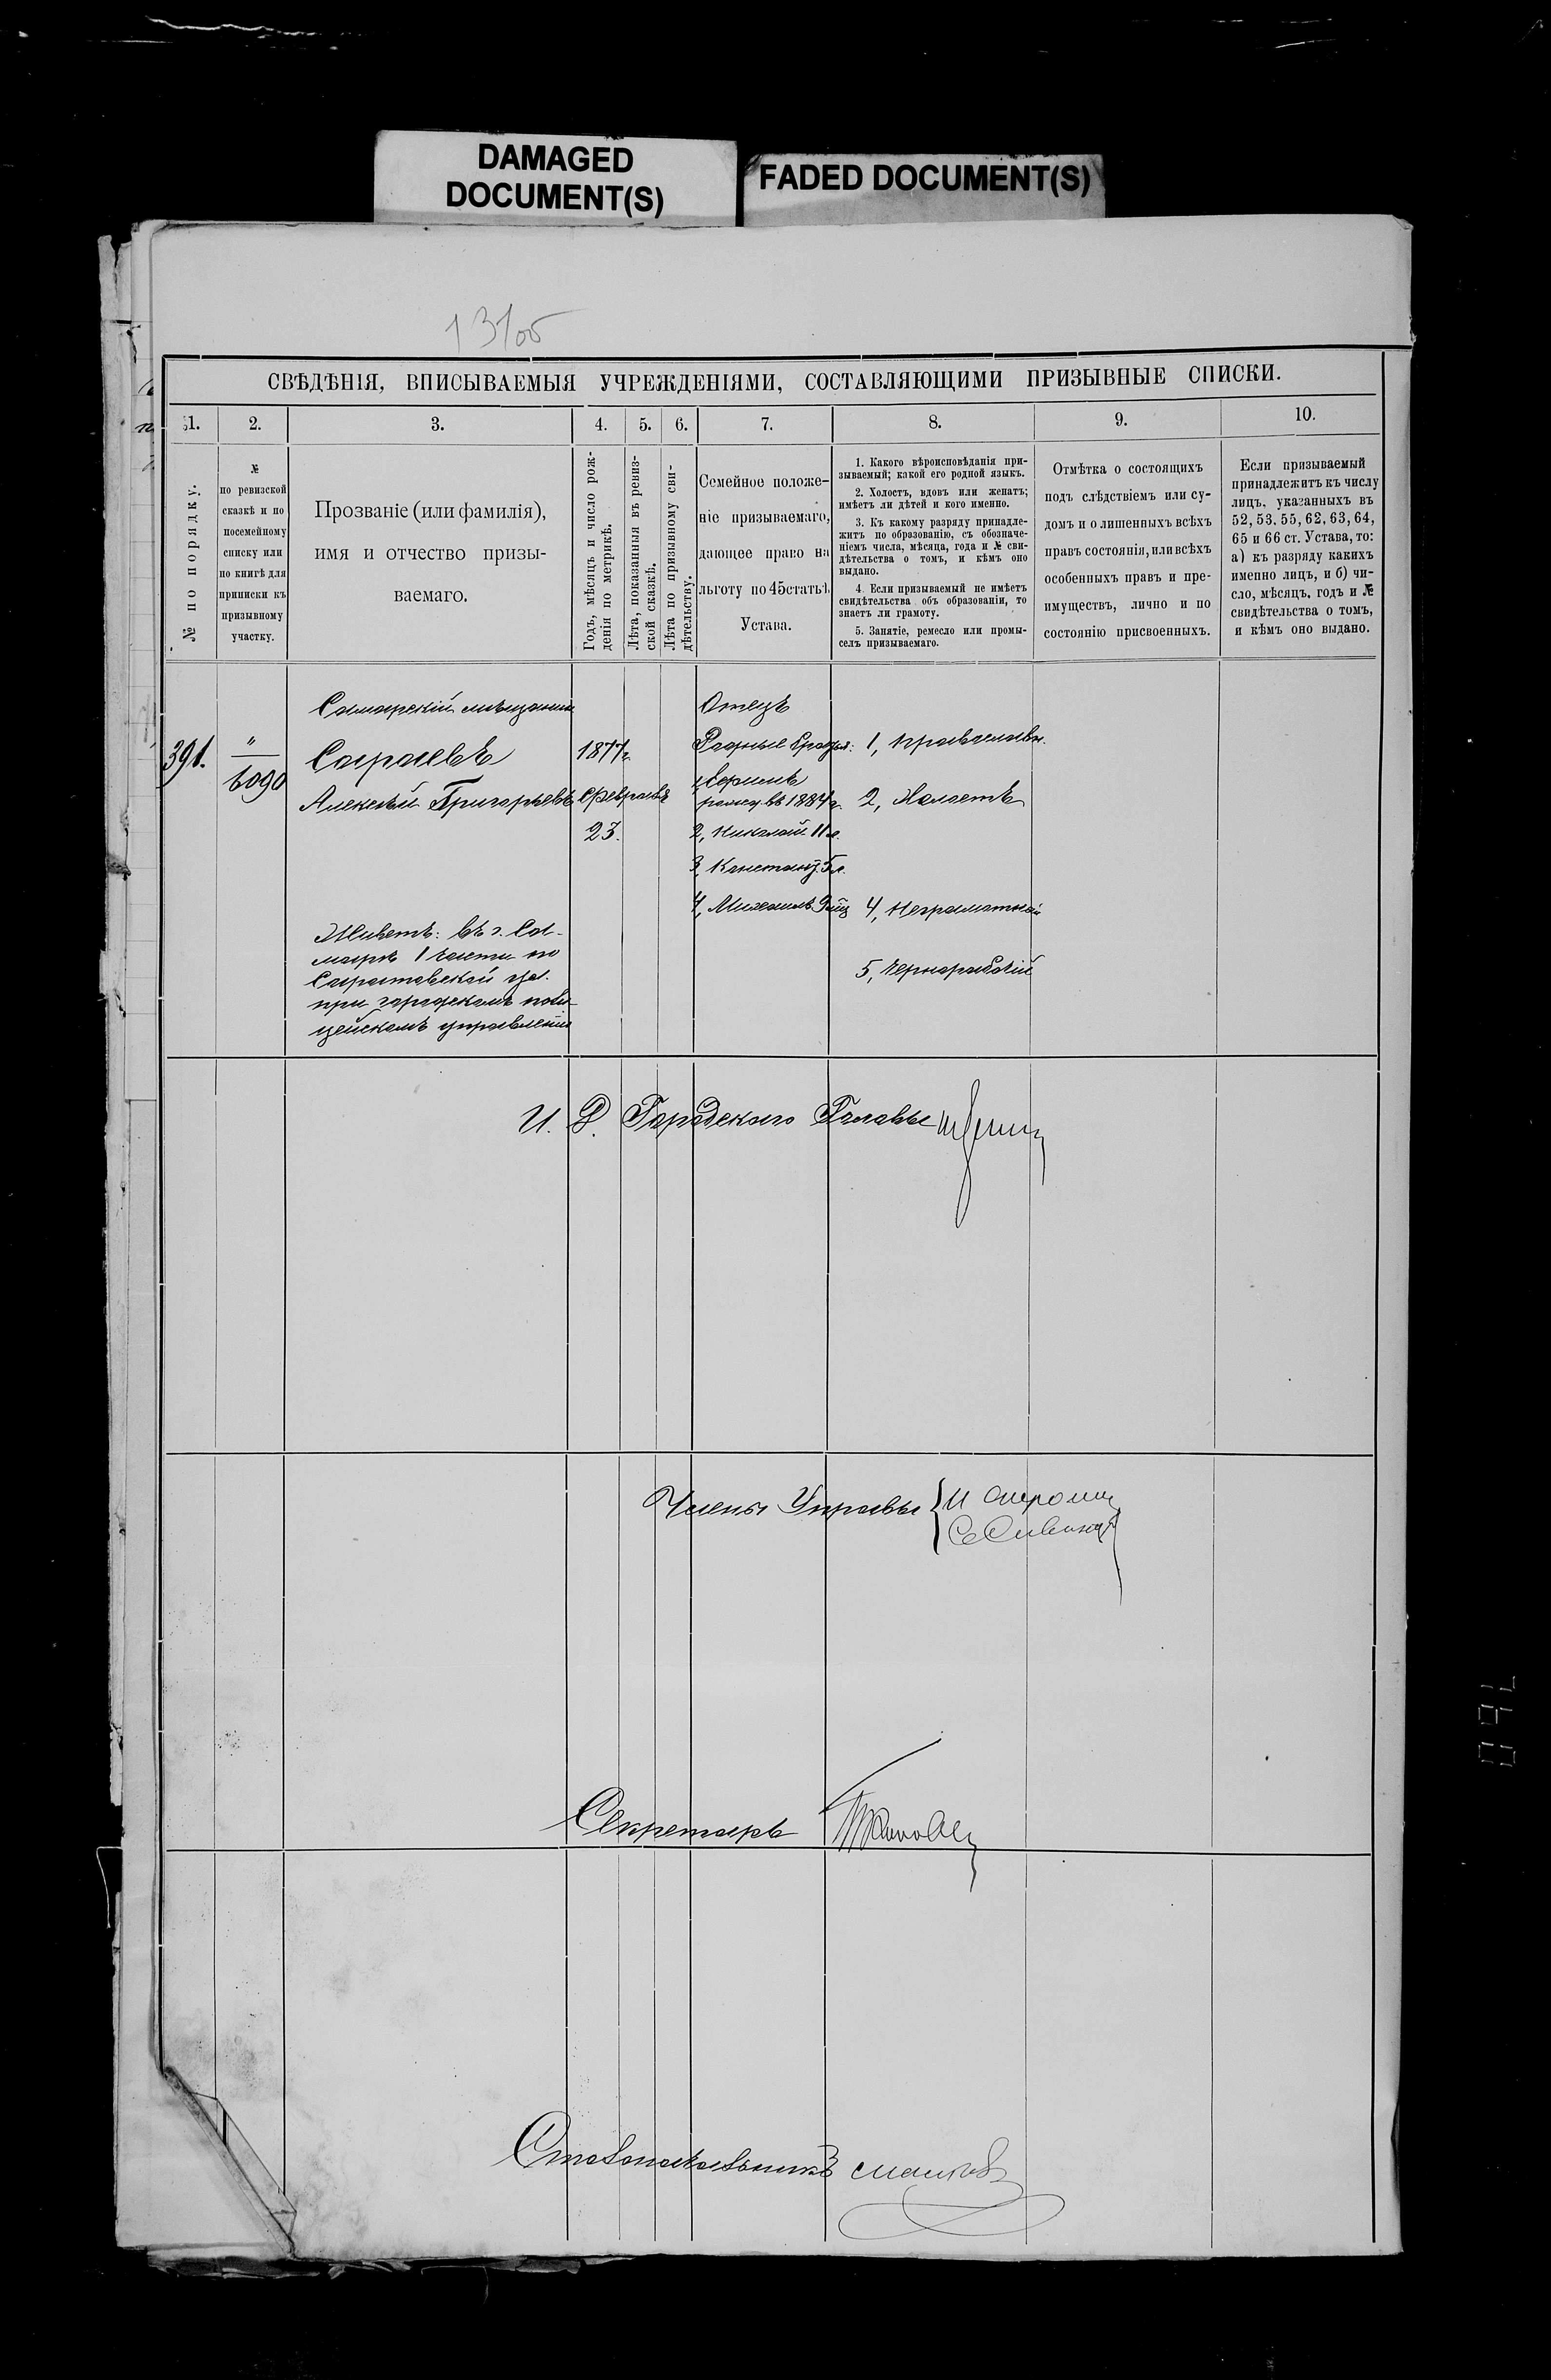 DAMAGED
DOCUMENT(S)
FADED DOCUMENT(S)
СВѢДѢНІЯ, ВПИСЫВАЕМЫЯ УЧРЕЖДЕНІЯМИ, СОСТАВЛЯЮЩИМИ ПРИЗЫВНЫЕ СПИСКИ.
1.
2.
3.
4.
5.
6.
7.
8.
9.
10.
№ по порядку.
№
по ревизской
сказкѣ и по
посемейному
списку или
по книгѣ для
приписки къ
призывному
участку.
Прозваніе (или фамилія),
имя и отчество призы-
ваемаго.
Годъ, мѣсяцъ и число рож-
денія по метрикѣ.
Лѣта, показанныя въ ревиз-
ской сказкѣ.
Лѣта по призывному сви-
дѣтельству.
Семейное положе-
ніе призываемаго,
дающее право на
льготу по 45 статьѣ
Устава.
1. Какого вѣроисповѣданія при-
зываемый; какой его родной языкъ.
2. Холостъ, вдовъ или женатъ;
имѣетъ ли дѣтей и кого именно.
3. Къ какому разряду принадле-
житъ по образованію, съ обозначе-
ніемъ числа, мѣсяца, года и № сви-
дѣтельства о томъ, и кѣмъ оно
выдано.
4. Если призываемый не имѣетъ
свидѣтельства объ образованіи, то
знаетъ ли грамоту.
5. Занятіе, ремесло или промы-
селъ призываемаго.
Отмѣтка о состоящихъ
подъ слѣдствіемъ или су-
домъ и о лишенныхъ всѣхъ
правъ состоянія, или всѣхъ
особенныхъ правъ и пре-
имуществъ, лично и по
состоянію присвоенныхъ.
Если призываемый
принадлежитъ къ числу
лицъ, указанныхъ въ
52, 53, 55, 62, 63, 64,
65 и 66 ст. Устава, то:
а) къ разряду какихъ
именно лицъ, и б) чи-
сло, мѣсяцъ, годъ и №
свидѣтельства о томъ,
и кѣмъ оно выдано.
391.
"
6090
Самарскій мѣщанинъ
Сараевъ
Алексѣй Григорьевъ
Живетъ: въ г. Са-
марѣ 1 части по
Саратовской ул.
при городскомъ поли-
цейскомъ управленіи
1877 г.
Февраля
23.
Отецъ
Родные братья:
родил. въ 1884 г.
2, Николай 11 л.
3, Констант. 5 л.
4, Михаилъ
1, Православн.
2, Холостъ
4, Неграмотный
5, Чернорабочій
И. Д. Городского Головы
Члены Управы
Секретарь
Столоначальникъ